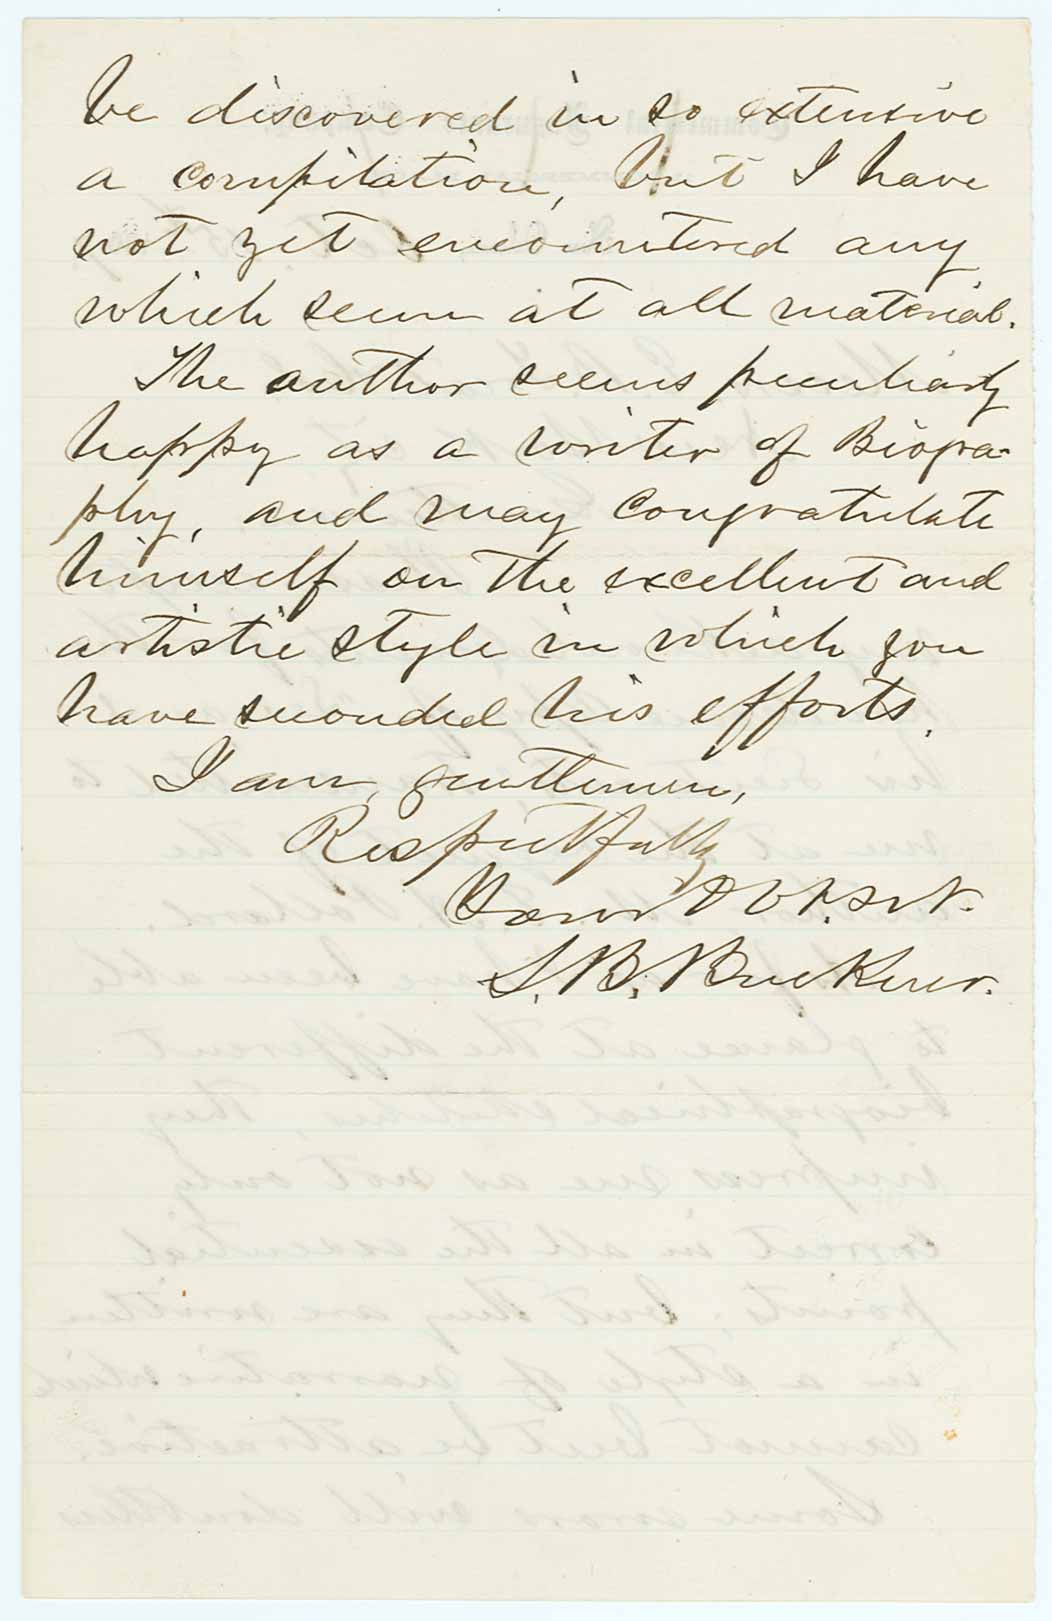 be discovered in so extensive
a compilation, but I have
not yet encountered any
which seem at all material.
The author seems peculiarly
happy as a writer of Biogra-
phy, and may congratulate
himself on the excellent and
artistic style in which you
have seconded his efforts.
I am, gentlemen,
Respectfully
Your Obt. Svt.
S. B. Buckner.